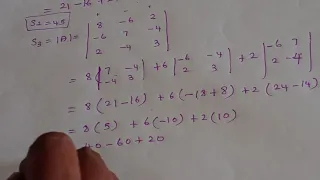 = 21-16 + 2
S₂ = 45
S₃ = |A| = | 8 -6 2 |
| -6 7 -4 |
| 2 -4 3 |
= 8 | 7 -4 | + 6 | -6 -4 | + 2 | -6 7 |
| -4 3 | | 2 3 | | 2 -4 |
= 8 (21-16) + 6 (-18+8) + 2 (24-14)
= 8 (5) + 6 (-10) + 2 (10)
40 - 60 + 20